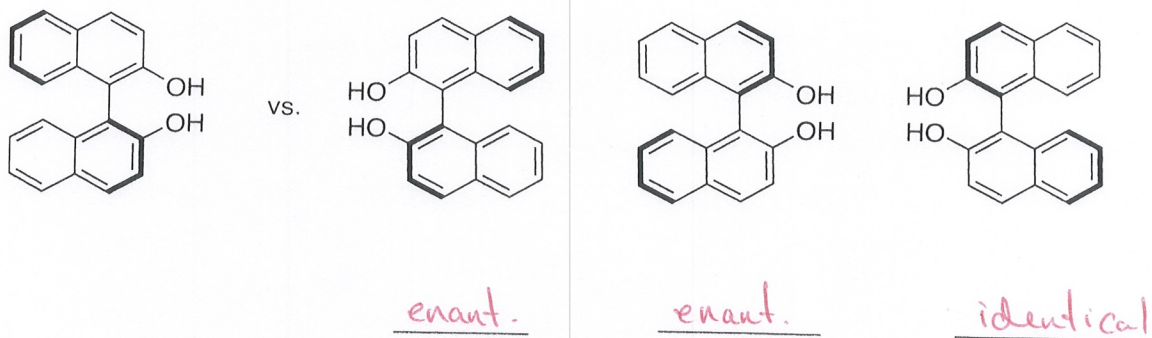 OH
OH
vs.
HO
HO
OH
OH
HO
HO
enant.
enant.
identical